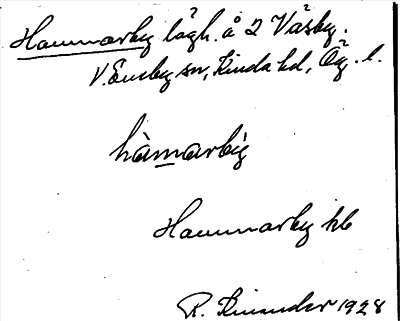 Hammarby lägh. å 2 Väsby.
V. Eneby sn, Kinda hd, Ög. l.
hàmarbýg
Hammarby kb
R. Kinander 1928